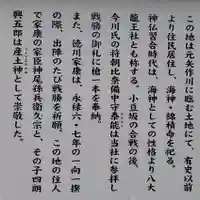 この地は元矢作川に臨む土地にて、有史以前
より住民居住し、海神・錦積命を祀る。
神仏習合時代は、海神としての性格より八大
龍王社とも称する。小豆坂の合戦の後、
今川氏の将朝比奈備中守泰能は当社に参拝し
戦勝の御礼に槍一本を奉納。
また、徳川家康は、永禄六・七年の一向一揆
の際、出陣のたび戦勝を祈願。この地の住人
で家康の家臣神尾孫兵衛久宗と、その子四朗
興五郎は産土神として崇敬した。